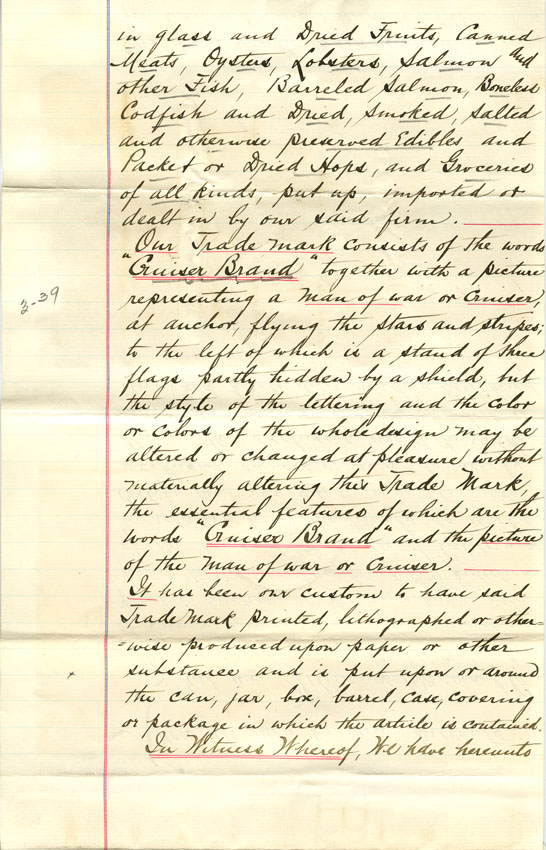 in glass and Dried Fruits, Canned
Meats, Oysters, Lobsters, Salmon and
other Fish, Barreled Salmon, Boneless
Codfish and Dried, Smoked, Salted
and otherwise preserved Edibles and
Packet or Dried Hops, and Groceries
of all kinds, put up, imported or
dealt in by our said firm.
Our Trade Mark consists of the words
"Cruiser Brand" together with a picture
representing a Man of war or Cruiser,
3-39
at anchor, flying the stars and stripes;
to the left of which is a stand of three
flags partly hidden by a shield, but
the style of the lettering and the color
or colors of the whole design may be
altered or changed at pleasure without
materially altering this Trade Mark,
the essential features of which are the
words "Cruiser Brand" and the picture
of the Man of war or Cruiser.
It has been our custom to have said
Trade Mark printed, lithographed or other=
=wise produced upon paper or other
substance and is put upon or around
the can, jar, box, barrel, case, covering
or package in which the article is contained.
In Witness Whereof, We have hereunto